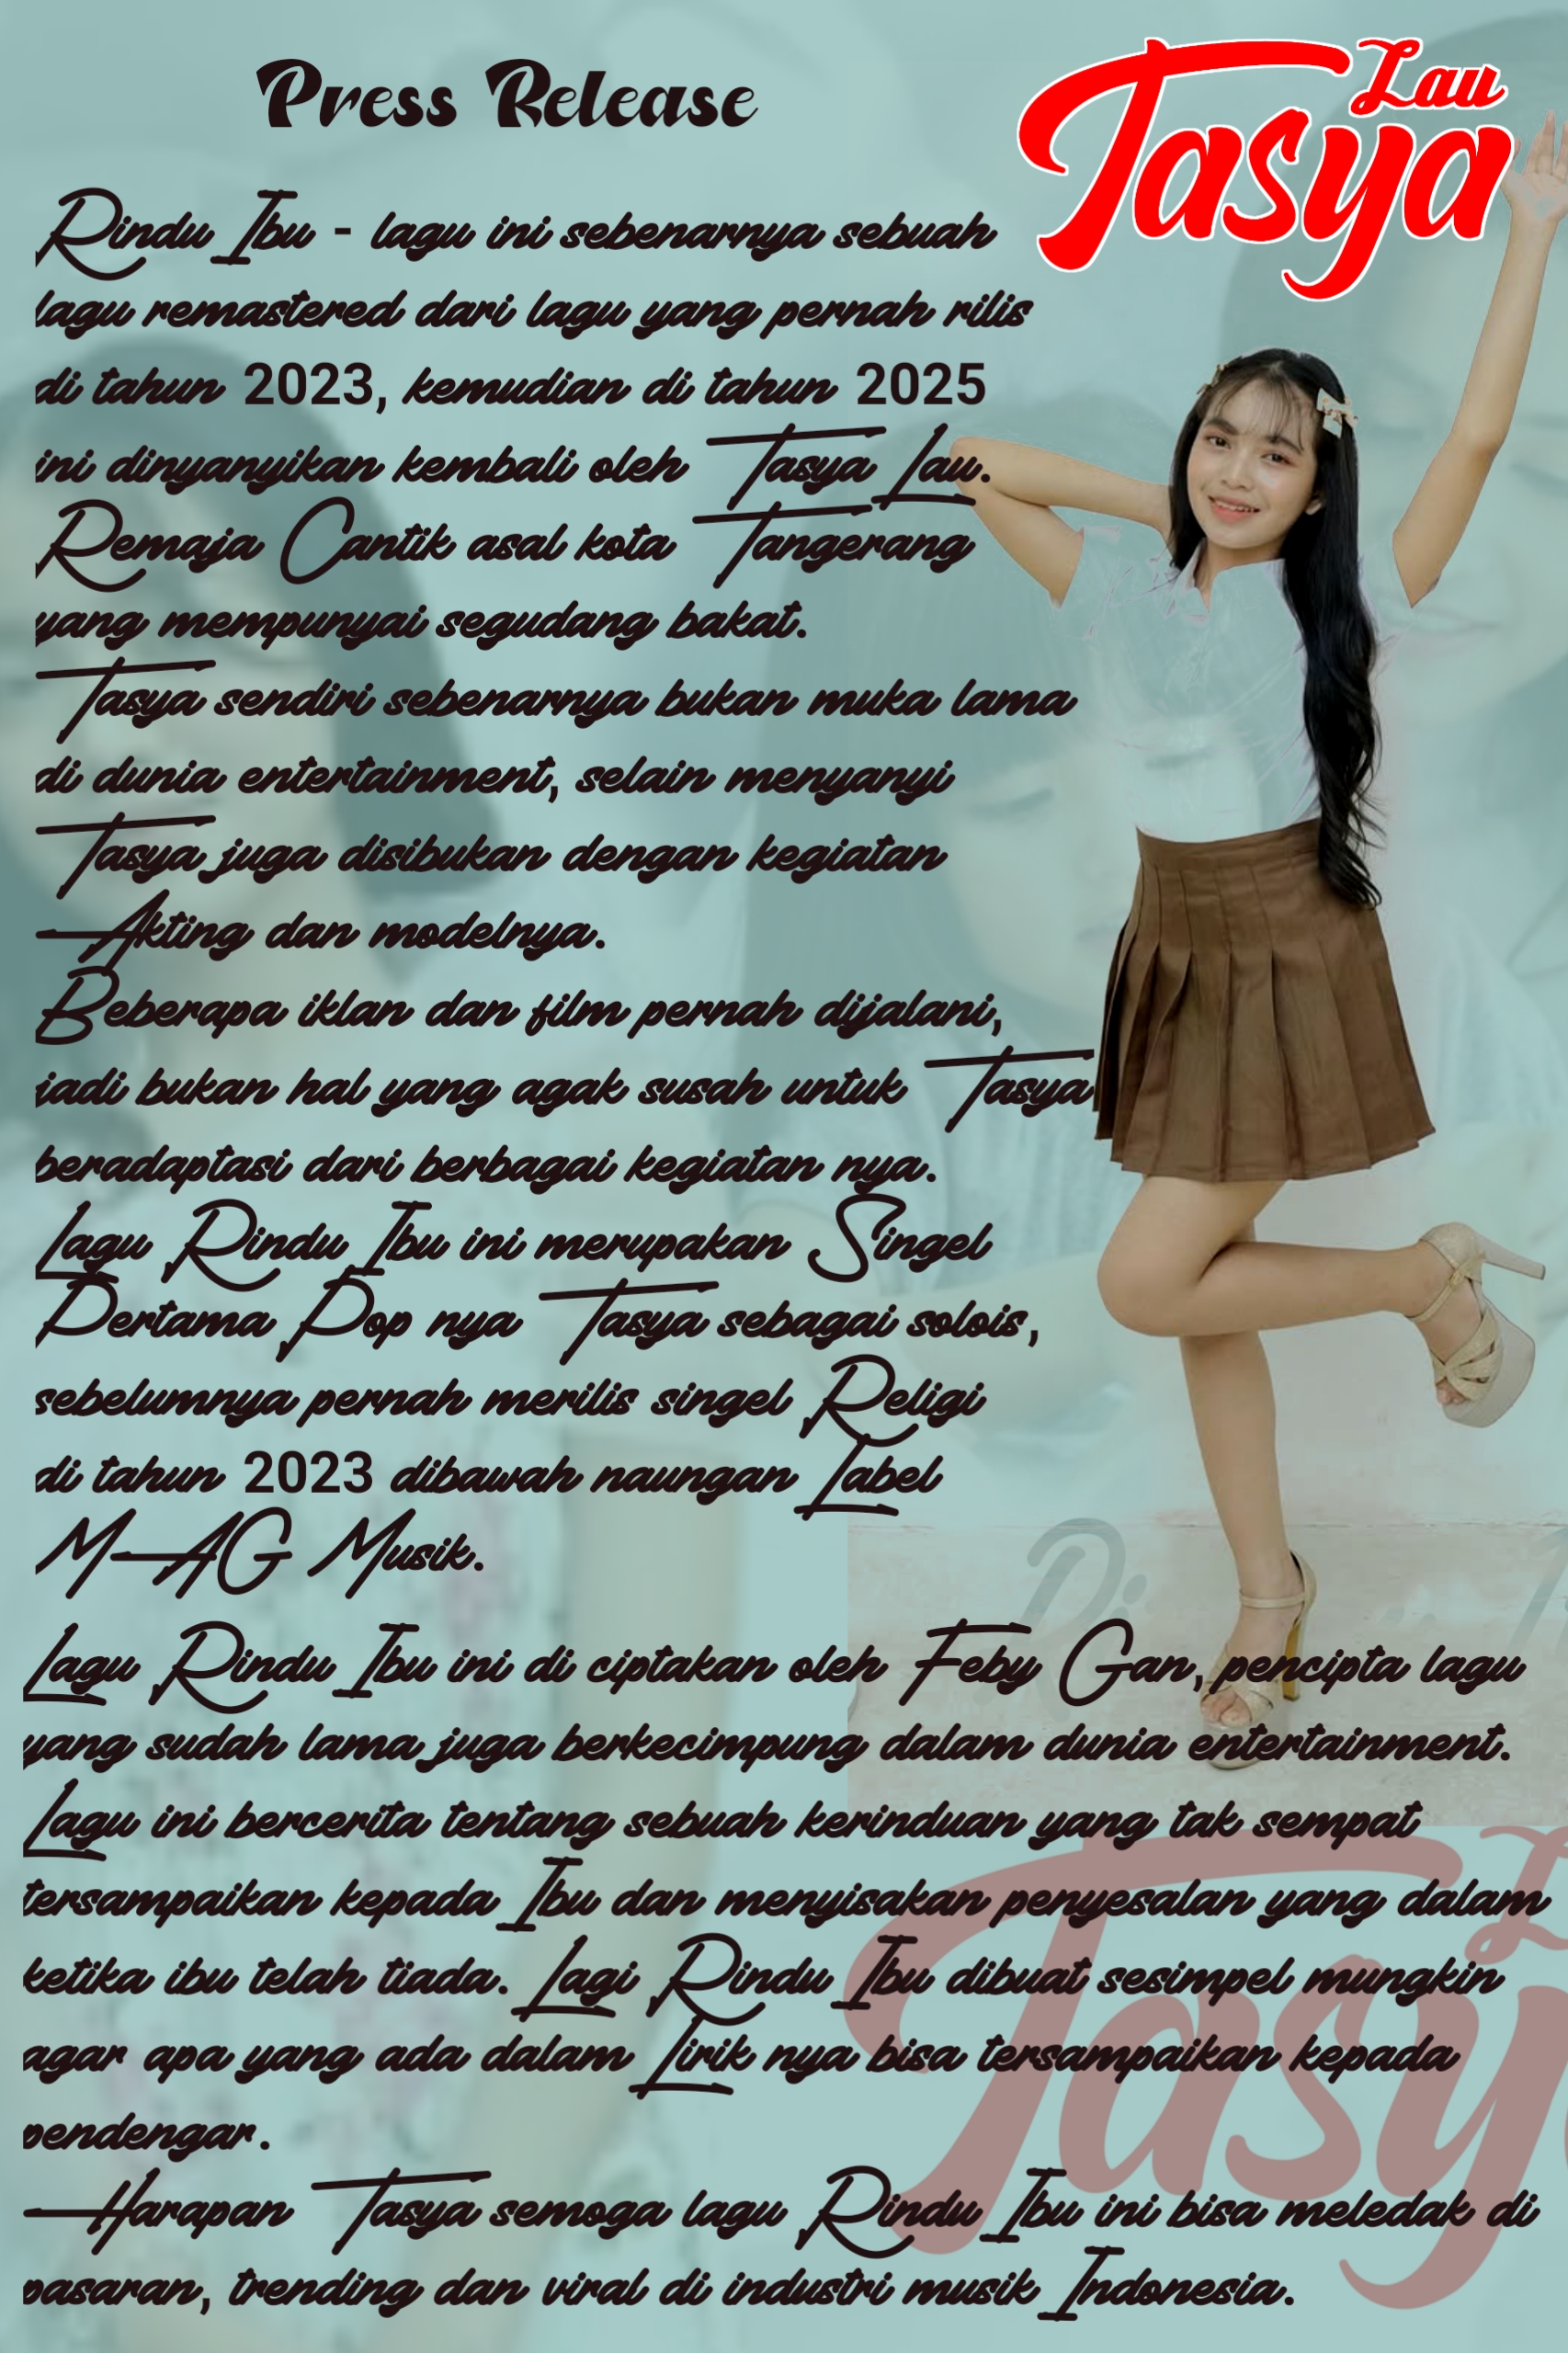 Press Release
Lau
Tasya
Rindu Ibu - lagu ini sebenarnya sebuah
lagu remastered dari lagu yang pernah rilis
di tahun 2023, kemudian di tahun 2025
ini dinyanyikan kembali oleh Tasya Lau.
Remaja Cantik asal kota Tangerang
yang mempunyai segudang bakat.
Tasya sendiri sebenarnya bukan muka lama
di dunia entertainment, selain menyanyi
Tasya juga disibukan dengan kegiatan
Akting dan modelnya.
Beberapa iklan dan film pernah dijalani,
jadi bukan hal yang agak susah untuk Tasya
beradaptasi dari berbagai kegiatan nya.
Lagu Rindu Ibu ini merupakan Singel
Pertama Pop nya Tasya sebagai solois,
sebelumnya pernah merilis singel Religi
di tahun 2023 dibawah naungan Label
MAG Musik.
Lagu Rindu Ibu ini di ciptakan oleh Feby Gan, pencipta lagu
yang sudah lama juga berkecimpung dalam dunia entertainment.
Lagu ini bercerita tentang sebuah kerinduan yang tak sempat
tersampaikan kepada Ibu dan menyisakan penyesalan yang dalam
ketika ibu telah tiada. Lagi Rindu Ibu dibuat sesimpel mungkin
agar apa yang ada dalam Lirik nya bisa tersampaikan kepada
pendengar.
Harapan Tasya semoga lagu Rindu Ibu ini bisa meledak di
pasaran, trending dan viral di industri musik Indonesia.
Tasy